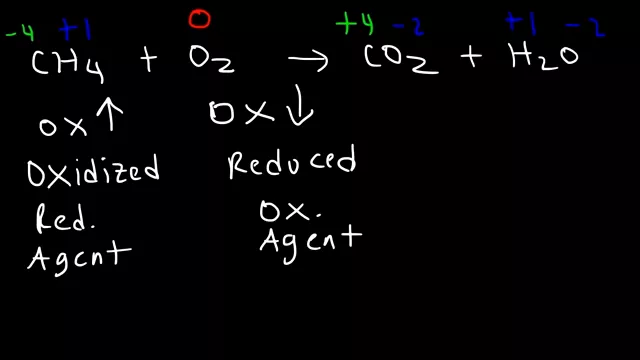 -4 +1 0 +4 -2 +1 -2
CH4 + O2 → CO2 + H2O
OX ↑ OX ↓
OXidized Reduced
Red. OX.
Agent Agent